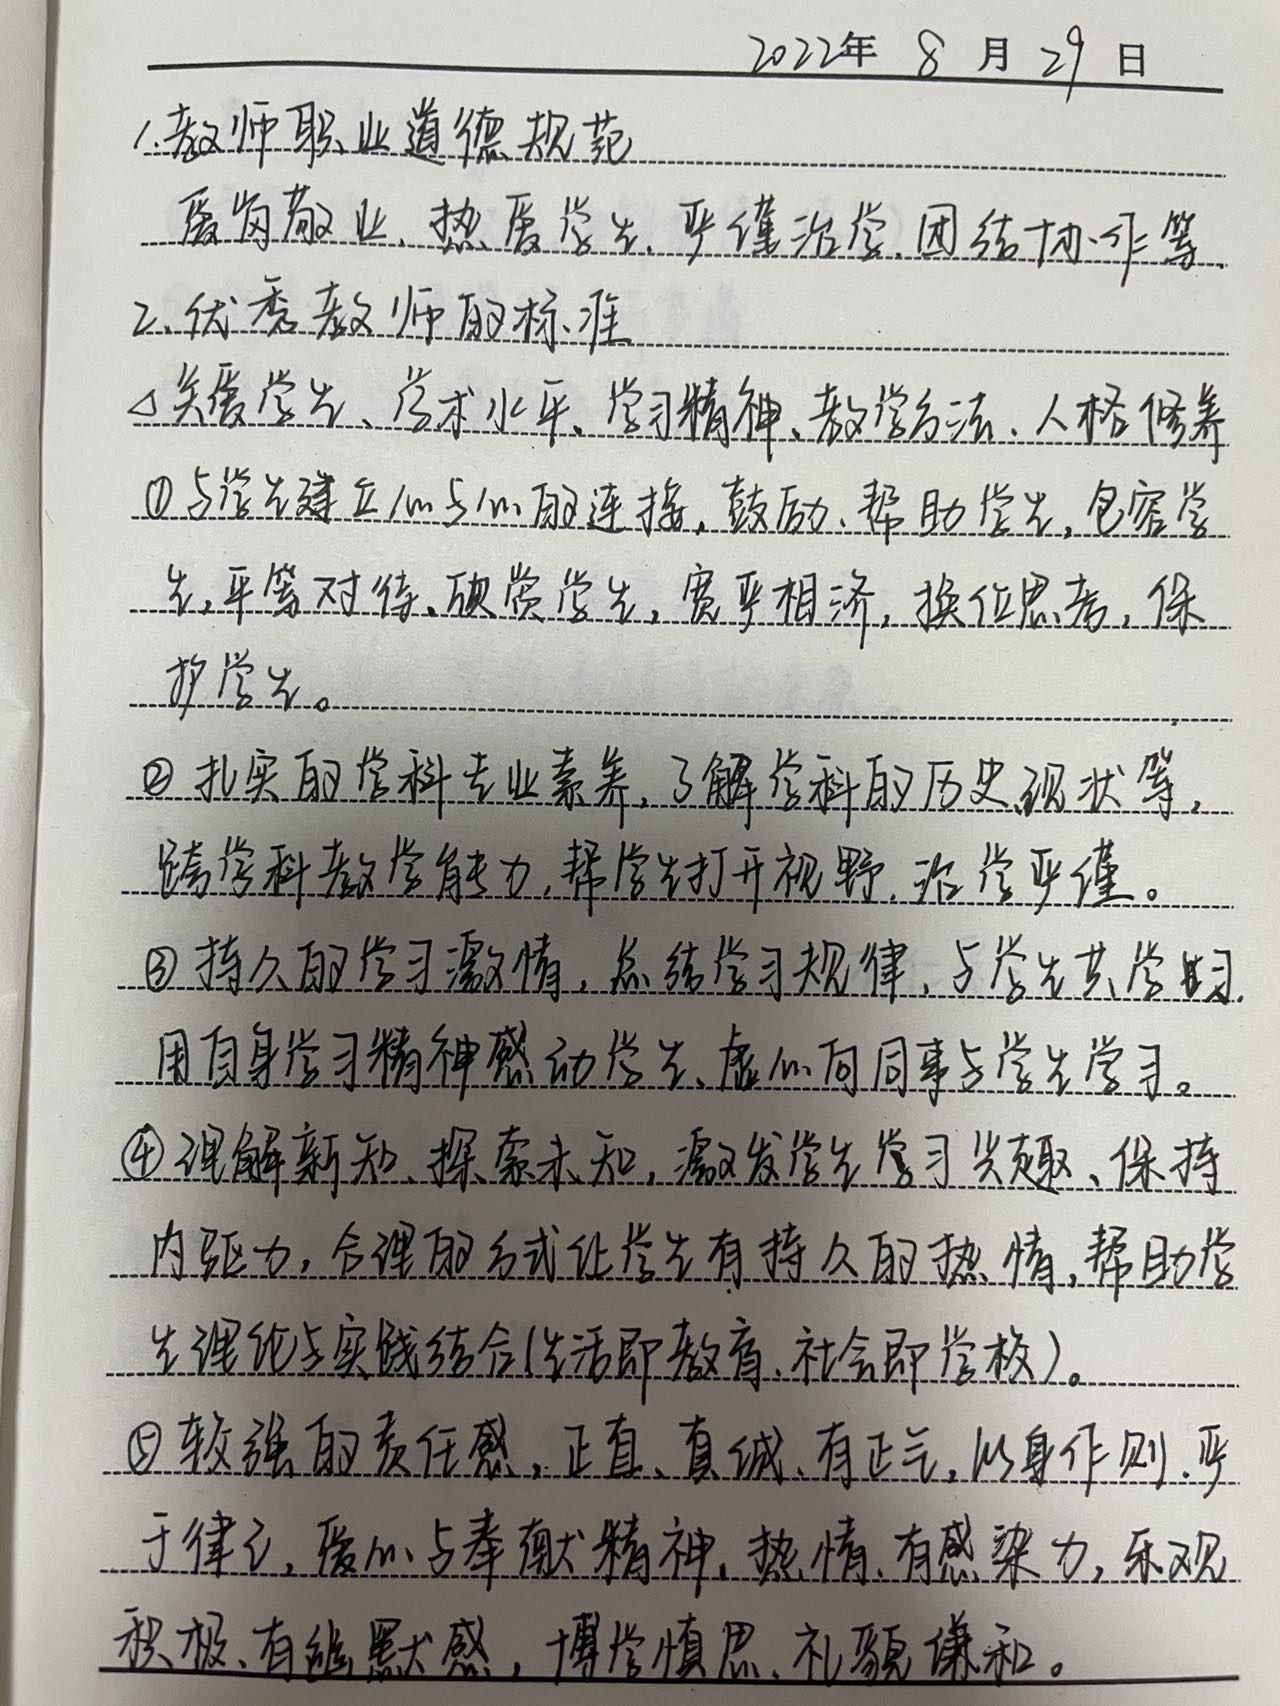 2022年 8 月 29 日
1.教师职业道德规范
爱岗敬业、热爱学生、严谨治学、团结协作等
2.优秀教师的标准
△关爱学生、学术水平、学习精神、教学方法、人格修养
①与学生建立心与心的连接,鼓励、帮助学生,包容学
生,平等对待、欣赏学生,宽严相济,换位思考,保
护学生。
②扎实的学科专业素养,了解学科的历史、现状等,
跨学科教学能力,帮学生打开视野,治学严谨。
③持久的学习激情,总结学习规律,与学生共学习,
用自身学习精神感动学生、虚心向同事与学生学习。
④理解新知、探索未知,激发学生学习兴趣、保持
内驱力,合理的方式让学生有持久的热情,帮助学
生理论与实践结合(生活即教育、社会即学校)。
⑤较强的责任感,正直、真诚、有正气,以身作则、严
于律己,爱心与奉献精神,热情、有感染力,乐观
积极、有幽默感,博学慎思、礼貌谦和。